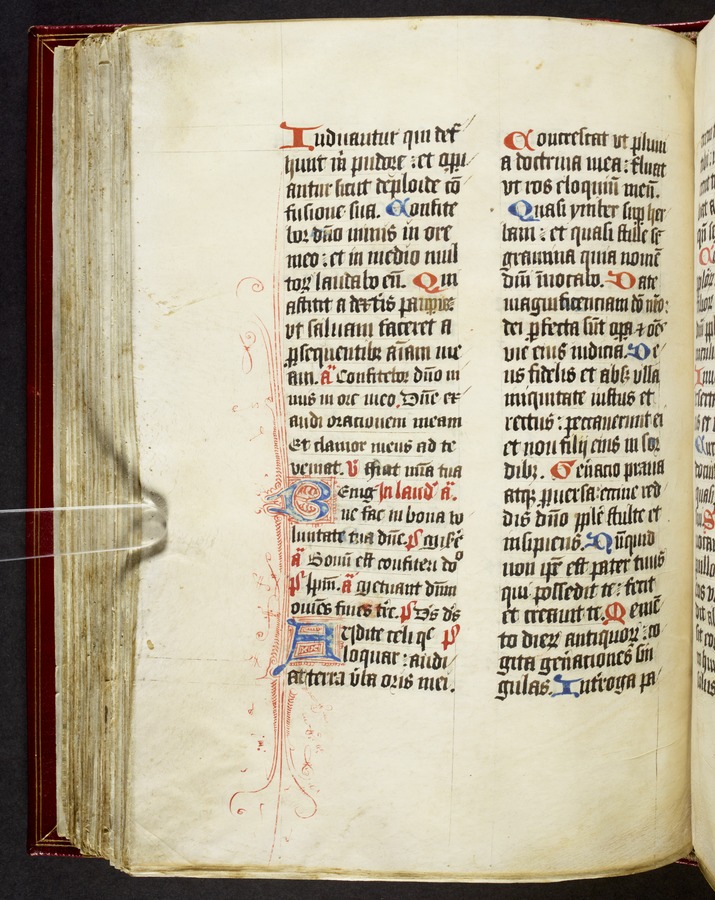 Induantur qui det̄
hunt m̄ pudore : et opi
antur sicut deploide cō
fusione sua. Confite
bor dn̄o nimis in ore
meo : et in medio mul
toꝝ laudabo eū. Qui
astitit a dextris paupiꝫ
vt saluam faceret a
ꝑsequentibꝫ aīam me
am. a᷎ Confitebor dn̄o ni
mis in ore meo. Dn̄e ex
audi orationem meam
Et clamor meus ad te
veniat. V̄ Fiat mīa tua
Benig In laud᷎ a᷎.
ne fac in bona vo
luntate tua dn̄e. p̄s
a᷎ Bonū est confiteri dō
p̄s a᷎ Metuant dn̄m
omēs fines tr̄e. p̄s Ds̄ ds̄
Audite celi qe
loquar : audi
at terra v̄ba oris mei.
Concrescat vt pluuia
a doctrina mea : fluat
vt ros eloquiū meū.
Quasi ymber suꝑ her
bam : et quasi stille sr̄
gramina quia nomē
dn̄i inuocabo. Date
magnificentiam dō nr̄o :
dei ꝑfecta sūt oꝑa ⁊ oēs
vie eius iudicia. De
us fidelis et absꝫ vlla
iniquitate iustus et
rectus : peccauerunt ei
et non filij eius in sor
dibꝫ. Generacio praua
atqꝫ ꝑuersa : eccine red
dis dn̄o pple stulte et
insipiens. Nūquid
non ip̄e est pater tuus
qui possedit te : fecit
et creauit te. Memē
to dierꝫ antiquoꝝ : co
gita gen̄aciones sin
gulas. Int̄roga pa